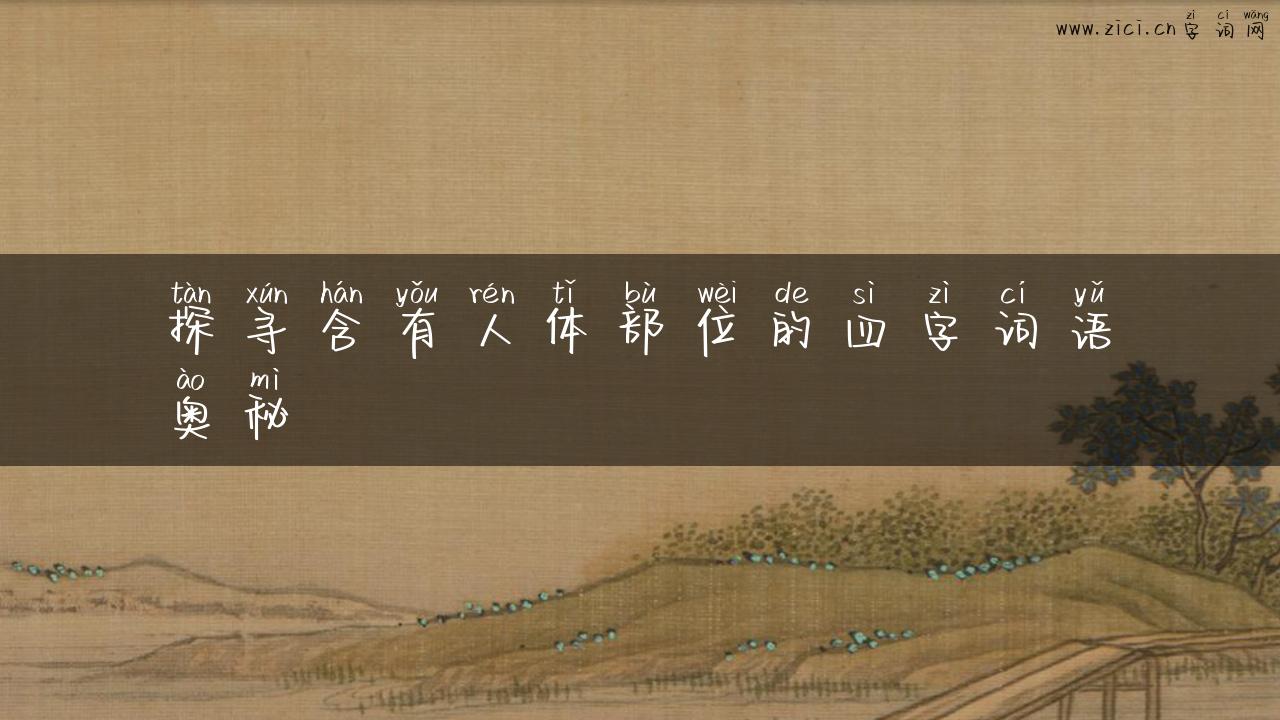 zì cí wǎng
www.zici.cn字词网
tàn xún hán yǒu rén tǐ bù wèi de sì zì cí yǔ
探寻含有人体部位的四字词语
ào mì
奥秘